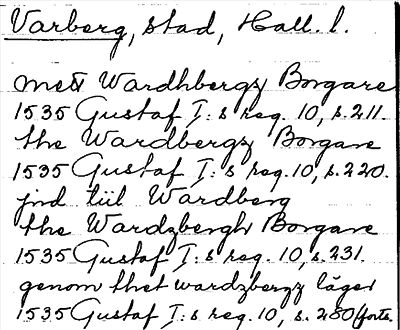 Varberg, stad, Hall. l.
mett Wardhbergz Borgare
1535 Gustaf I:s reg. 10, s. 211.
the Wardbergz Borgare
1535 Gustaf I:s reg. 10, s. 220.
jnd tiil Wardberg
the Wardzbergh Borgare
1535 Gustaf I:s reg. 10, s. 231.
genom thet wardzbergz läger
1535 Gustaf I:s reg. 10, s. 280 (forts.